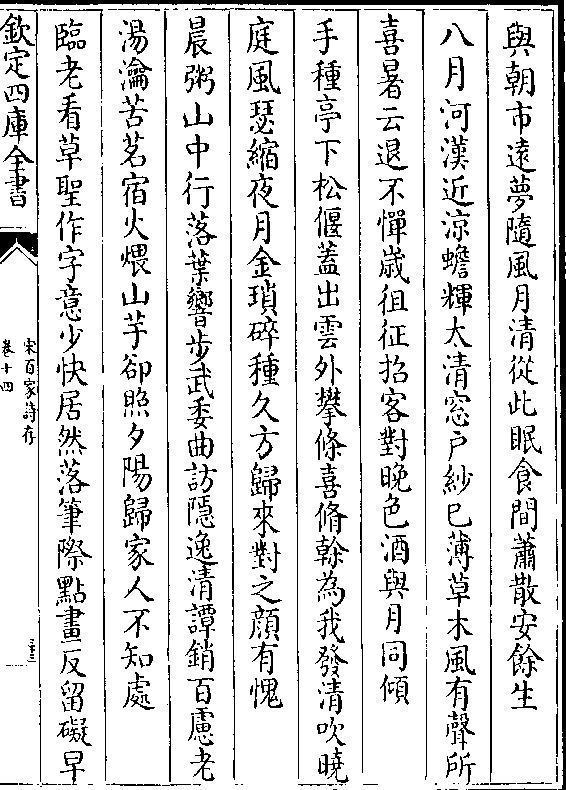 與朝市遠夢隨風月清從此眠食間蕭散安餘生
八月河漢近涼蟾輝太清窓戶紗已薄草木風有聲所
喜暑云退不憚歳徂征招客對晚色酒與月同傾
手種亭下松偃蓋出雲外攀條喜脩榦為我發清吹曉
庭風瑟縮夜月金瑣碎種久方歸來對之顔有愧
晨粥山中行落葉響步武委曲訪隱逸清譚銷百慮老
湯瀹苦茗宿火煨山芋卻照夕陽歸家人不知處
臨老看草聖作字意少快居然落筆際點畫反留礙早
欽定四庫全書
宋百家詩存
卷十四